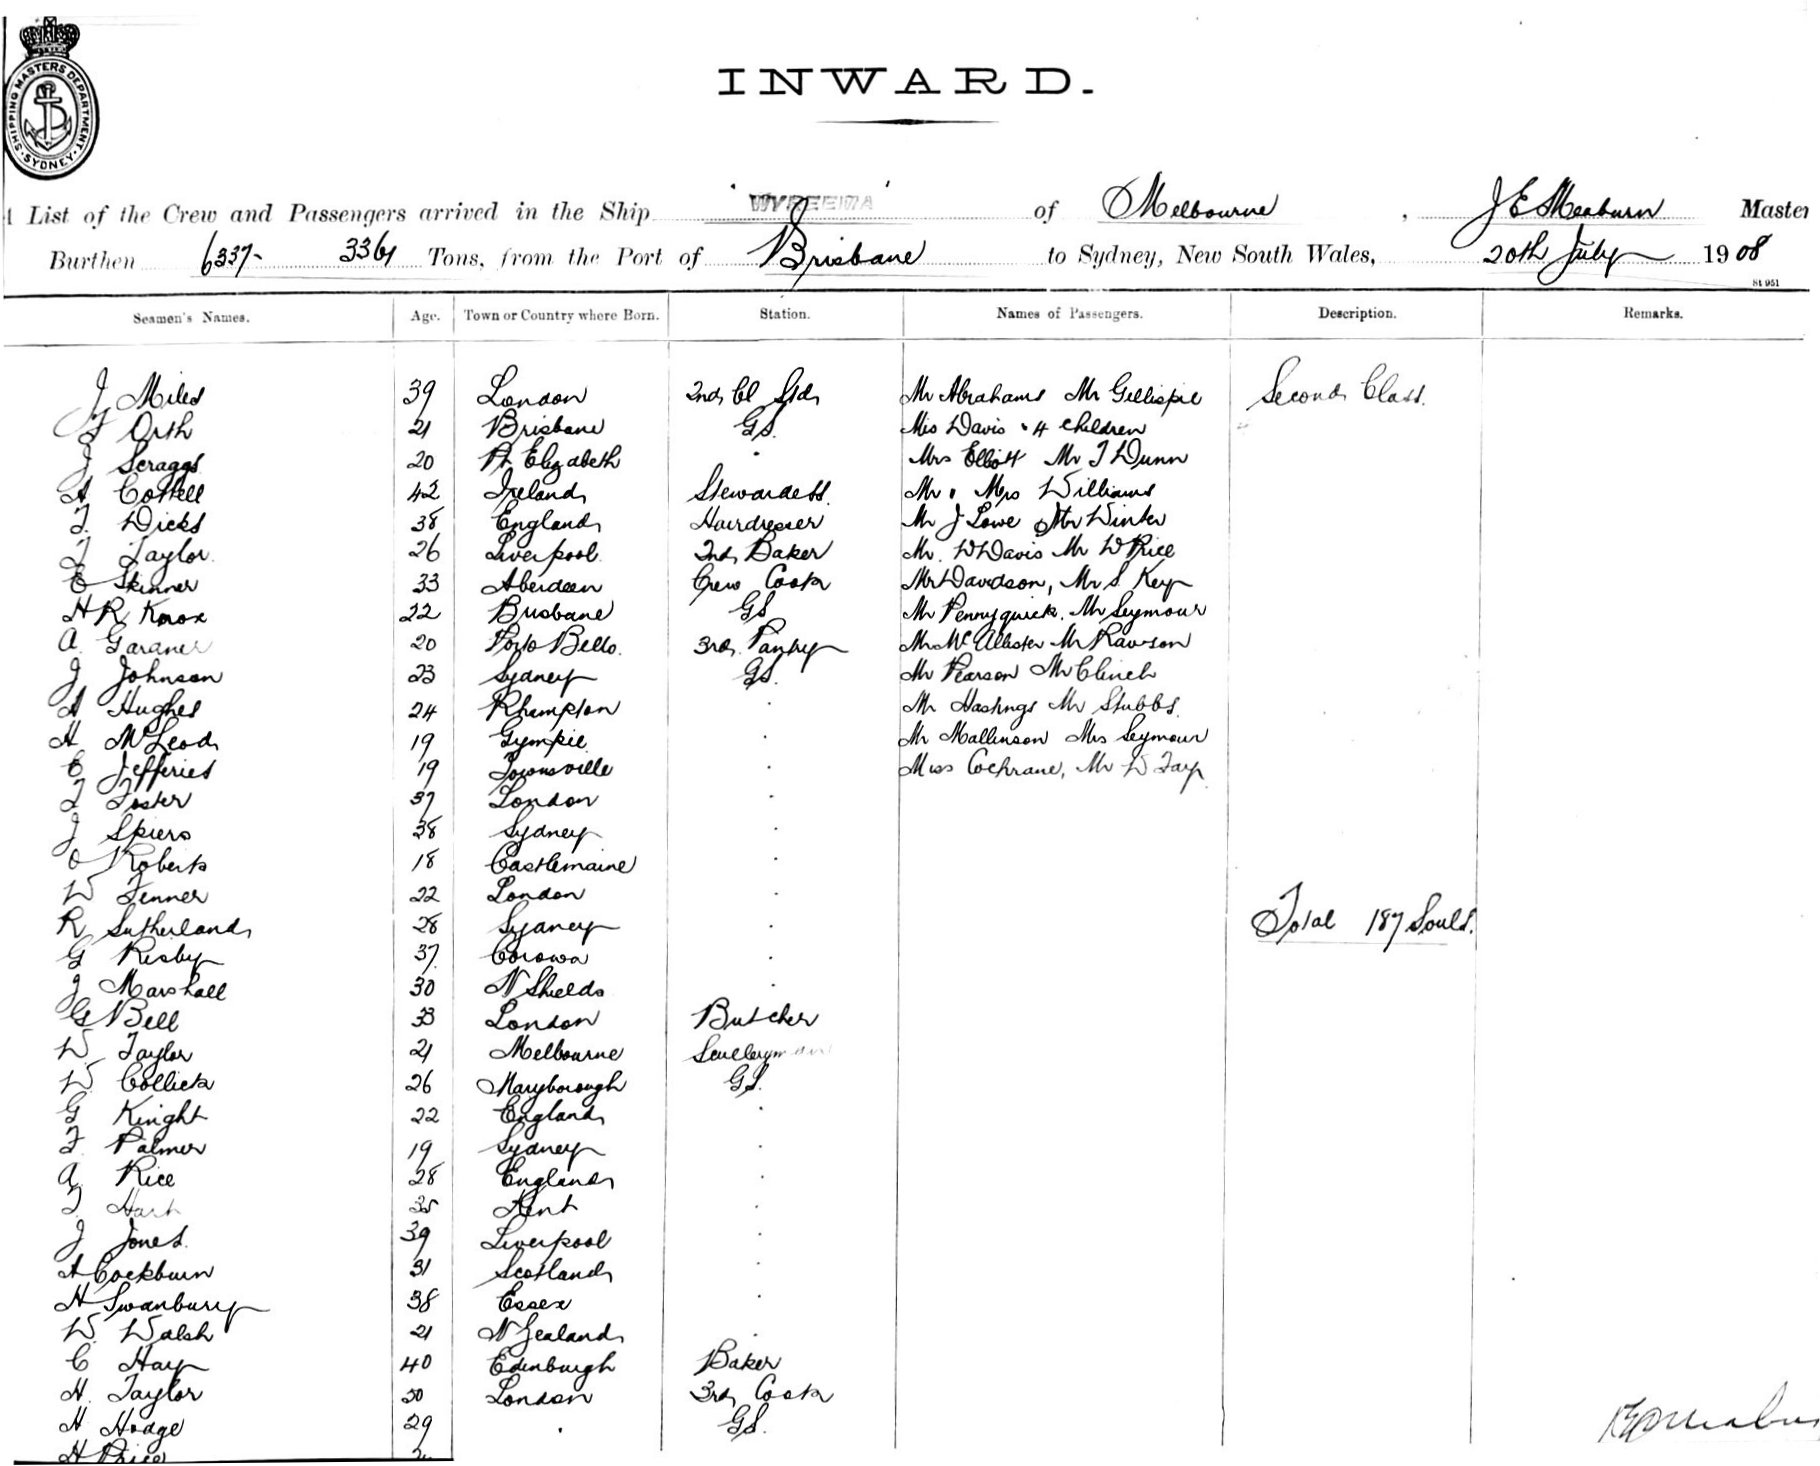 SHIPPING MASTERS DEPARTMENT. SYDNEY.
INWARD.
List of the Crew and Passengers arrived in the Ship WYREEMA of Melbourne, J E Meaburn Master
Burthen 6337- 3361 Tons, from the Port of Brisbane to Sydney, New South Wales, 20th July 1908
St 951
Seamen's Names. Age. Town or Country where Born. Station. Names of Passengers. Description. Remarks.
J Miles 39 London 2nd Cl Std Mr Abrahams Mr Gillispie Second Class.
F Orth 21 Brisbane GS. Mrs Davis & 4 children
J Scraggs 20 Pt Elizabeth " Mrs Elliott Mr T Dunn
A Cottell 42 Ireland Stewardess. Mr & Mrs Williams
T. Dicks 38 England Hairdresser Mr J Lowe Mr Winter
J Taylor. 26 Liverpool. 2nd Baker Mr. W Davis Mr W Rice
E Skinner 33 Aberdeen Crew Cook Mr Davidson, Mr S Key
H R Knox 22 Brisbane GS Mr Pennyquick. Mr Seymour
A. Gardner 20 Porto Bello. 3rd Pantry Mr McAllister Mr Rawson
J Johnson 23 Sydney GS. Mr Pearson Mr Clinch
A Hughes 24 Rhampton " Mr Hastings Mr Stubbs.
H McLeod 19 Gympie " Mr Mallinson Mrs Seymour
C Jefferies 19 Townsville " Miss Cochrane, Mr W Fay
T Foster 37 London "
J Spiers 38 Sydney "
O Roberts 18 Castlemaine "
W Fenner 22 London "
R Sutherland 28 Sydney " Total 187 Souls.
G Risby 37 Corowa "
J Marshall 30 N Shields "
G Bell 33 London Butcher
W Taylor 21 Melbourne Sculleryman
W. Collick 26 Maryborough GS.
G Knight 22 England "
F Palmer 19 Sydney "
A. Rice 28 England "
T Hart 35 Kent "
J Jones. 39 Liverpool "
A Cockburn 31 Scotland "
H Swanbury 38 Essex "
W. Walsh 21 N Zealand "
C Hay 40 Edinburgh Baker
H. Taylor 30 London 3rd Cook
H Hodge 29 " GS.
H Price